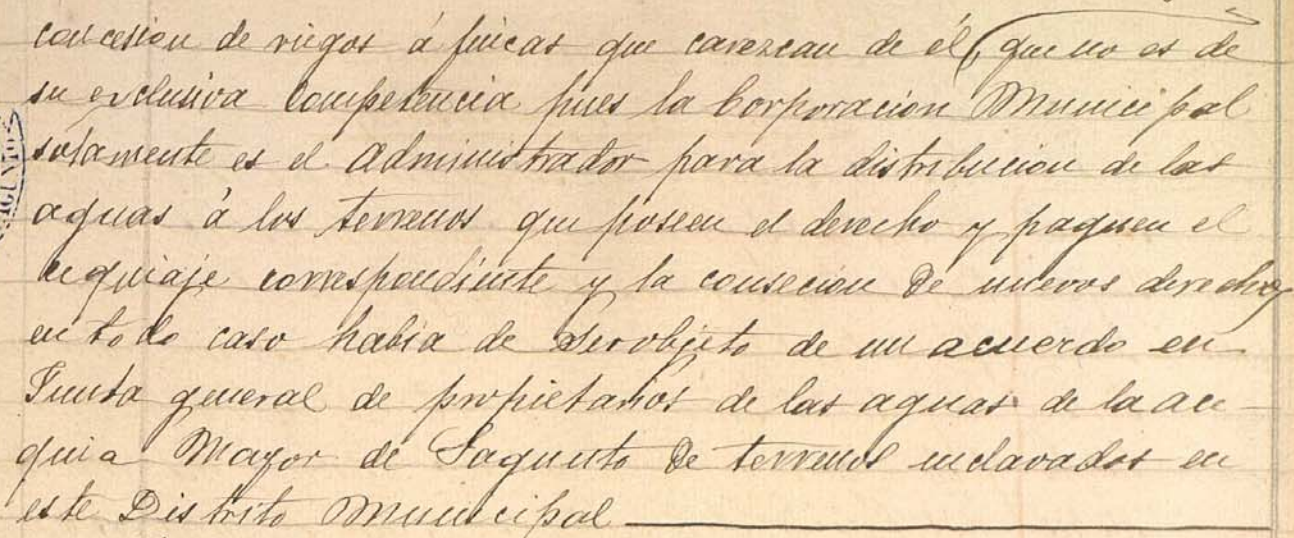 concesion de riegos á fincas que carezcan de él, que no es de
su exclusiva competencia pues la Corporación Municipal
solamente es el Administrador para la distribucion de las
aguas á los terrenos que poseen el derecho y paguen el
cequiaje correspondiente y la consecion de nuevos derechos
en todo caso habia de ser objeto de un acuerdo en
Junta general de propietarios de las aguas de la ace-
quia Mayor de Sagunto de terrenos enclavados en
este Distrito Municipal